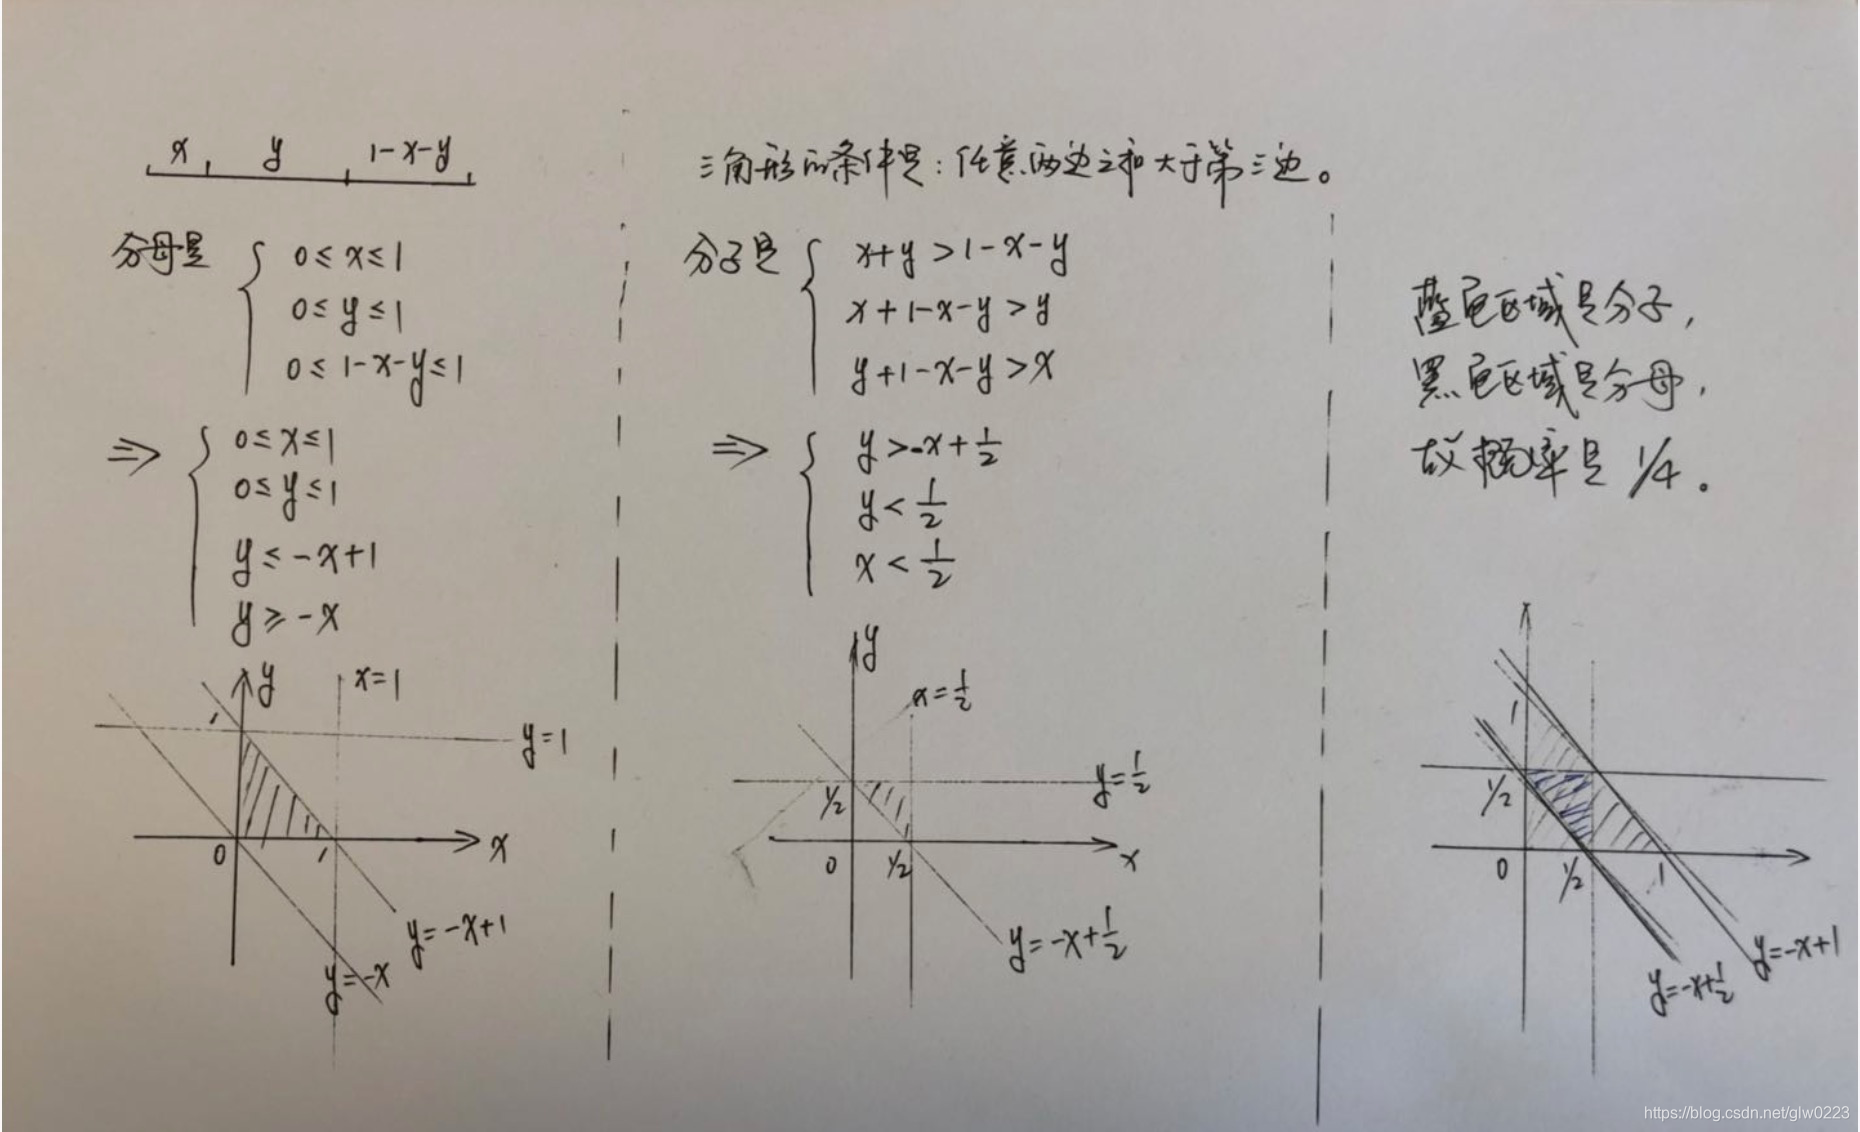 x y 1-x-y
分母是 { 0 ≤ x ≤ 1
0 ≤ y ≤ 1
0 ≤ 1-x-y ≤ 1
⇒ { 0 ≤ x ≤ 1
0 ≤ y ≤ 1
y ≤ -x+1
y ≥ -x
y
x=1
1
y=1
0
1
x
y=-x+1
y=-x
三角形的条件是：任意两边之和大于第三边。
分子是 { x+y > 1-x-y
x+1-x-y > y
y+1-x-y > x
⇒ { y > -x + 1/2
y < 1/2
x < 1/2
y
x=1/2
y=1/2
1/2
0
1/2
x
y=-x+1/2
蓝色区域是分子，
黑色区域是分母，
故概率是 1/4。
1
1/2
0
1/2
1
y=-x+1
y=-x+1/2
https://blog.csdn.net/glw0223